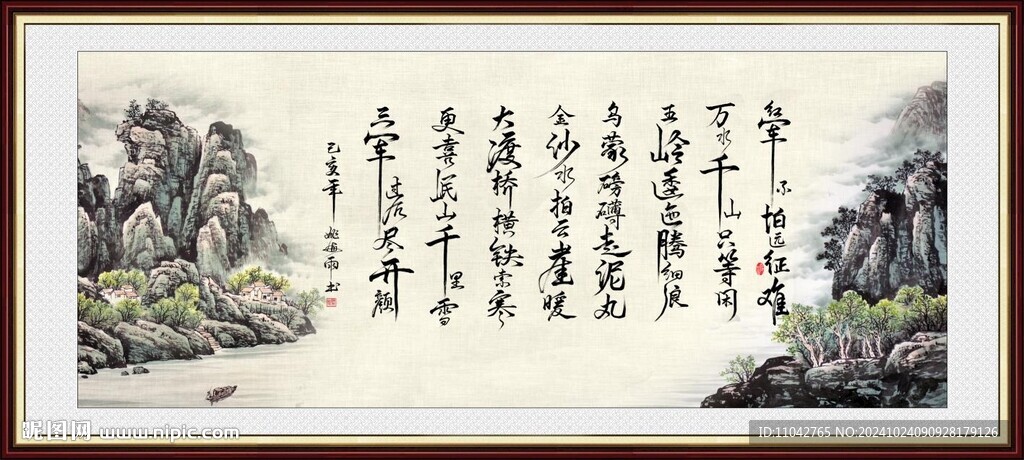 红军不怕远征难
万水千山只等闲
五岭逶迤腾细浪
乌蒙磅礴走泥丸
金沙水拍云崖暖
大渡桥横铁索寒
更喜岷山千里雪
三军过后尽开颜
己亥年 雨书
昵图网 www.nipic.com
ID:11042765 NO:20241024090928179126